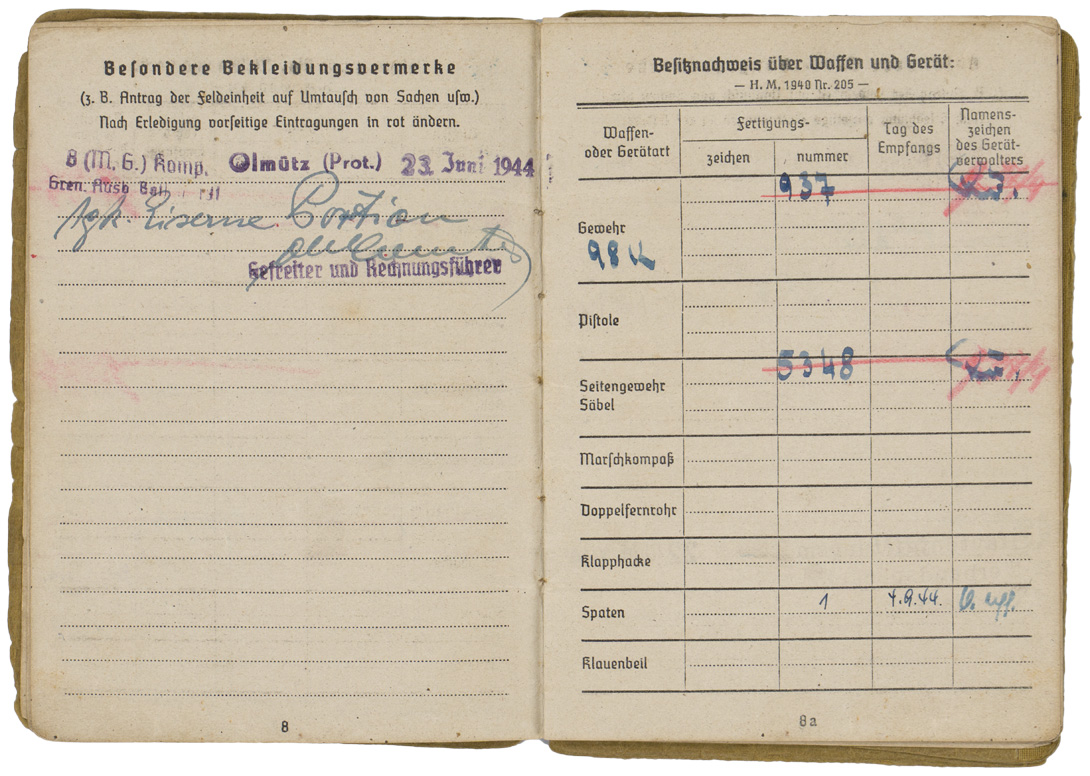 Besondere Bekleidungsvermerke
(z. B. Antrag der Feldeinheit auf Umtausch von Sachen usw.)
Nach Erledigung vorseitige Eintragungen in rot ändern.
8 (M. G.) Komp. Olmütz (Prot.) 23. Juni 1944
Gren. Ausb. Batl.
Eiserne Portion
Gefreiter und Rechnungsführer
8
Besitznachweis über Waffen und Gerät:
— H. M. 1940 Nr. 205 —
Waffen- oder Gerätart
Fertigungs-
zeichen
nummer
Tag des Empfangs
Namens- zeichen des Gerät- verwalters
937
Gewehr
98 K
Pistole
5348
Seitengewehr
Säbel
Marschkompaß
Doppelfernrohr
Klapphacke
Spaten 1 4.9.44.
Klauenbeil
8a